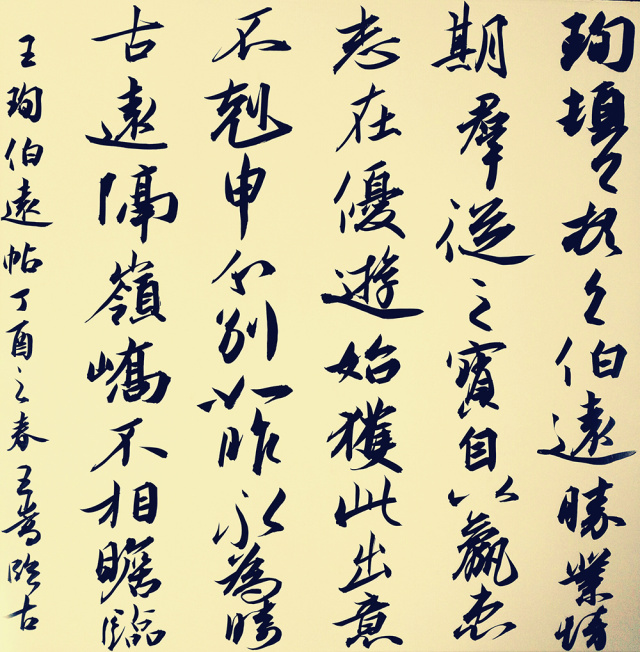 珣頓々首々伯遠勝業情
期羣從之寶自以羸患
志在優遊始獲此出意
不剋申分別如昨永為疇
古遠隔嶺嶠不相瞻臨
王珣伯遠帖丁酉之春王嵩臨古